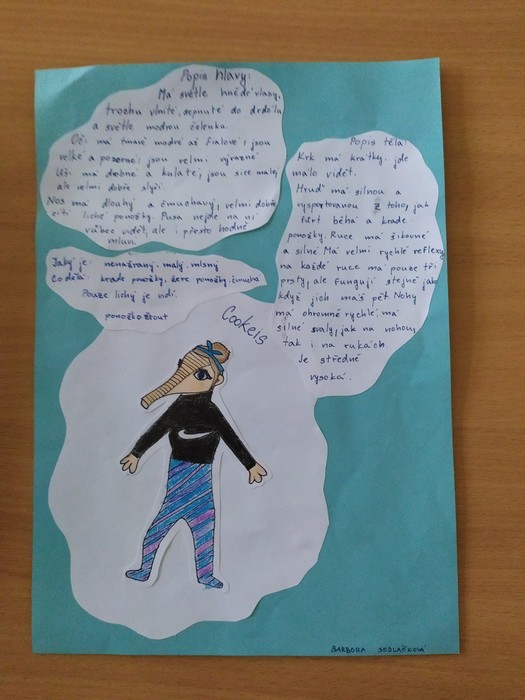 Popis hlavy:
Má světle hnědé vlasy,
trochu vlnité, sepnuté do drdolu
a světle modrou čelenku.
Oči má tmavě modré až fialové i jsou
velké a pozorné; jsou velmi výrazné
Uši má drobné a kulaté, jsou sice malé,
ale velmi dobře slyší.
Nos má dlouhý a čmuchavý, velmi dobře
cítí liché ponožky. Pusa nejde na ní
vůbec vidět, ale i přesto hodně
mluví.
Jaký je: nenažraný, malý, mlsný
Co dělá: krade ponožky, žere ponožky, čmuchá
Pouze lichý je vidí
ponožkožrout
Cookeis
Popis těla:
Krk má krátký, jde
málo vidět.
Hruď má silnou a
vysportovanou z toho, jak
furt běhá a krade
ponožky. Ruce má šikovné
a silné Má velmi rychlé reflexy,
na každé ruce má pouze tři
prsty, ale fungují stejně jako
když jich máš pět. Nohy
má ohromně rychlé, má
silné svaly, jak na nohou,
tak i na rukách.
Je středně
vysoká.
BARBORA SEDLAČKOVÁ